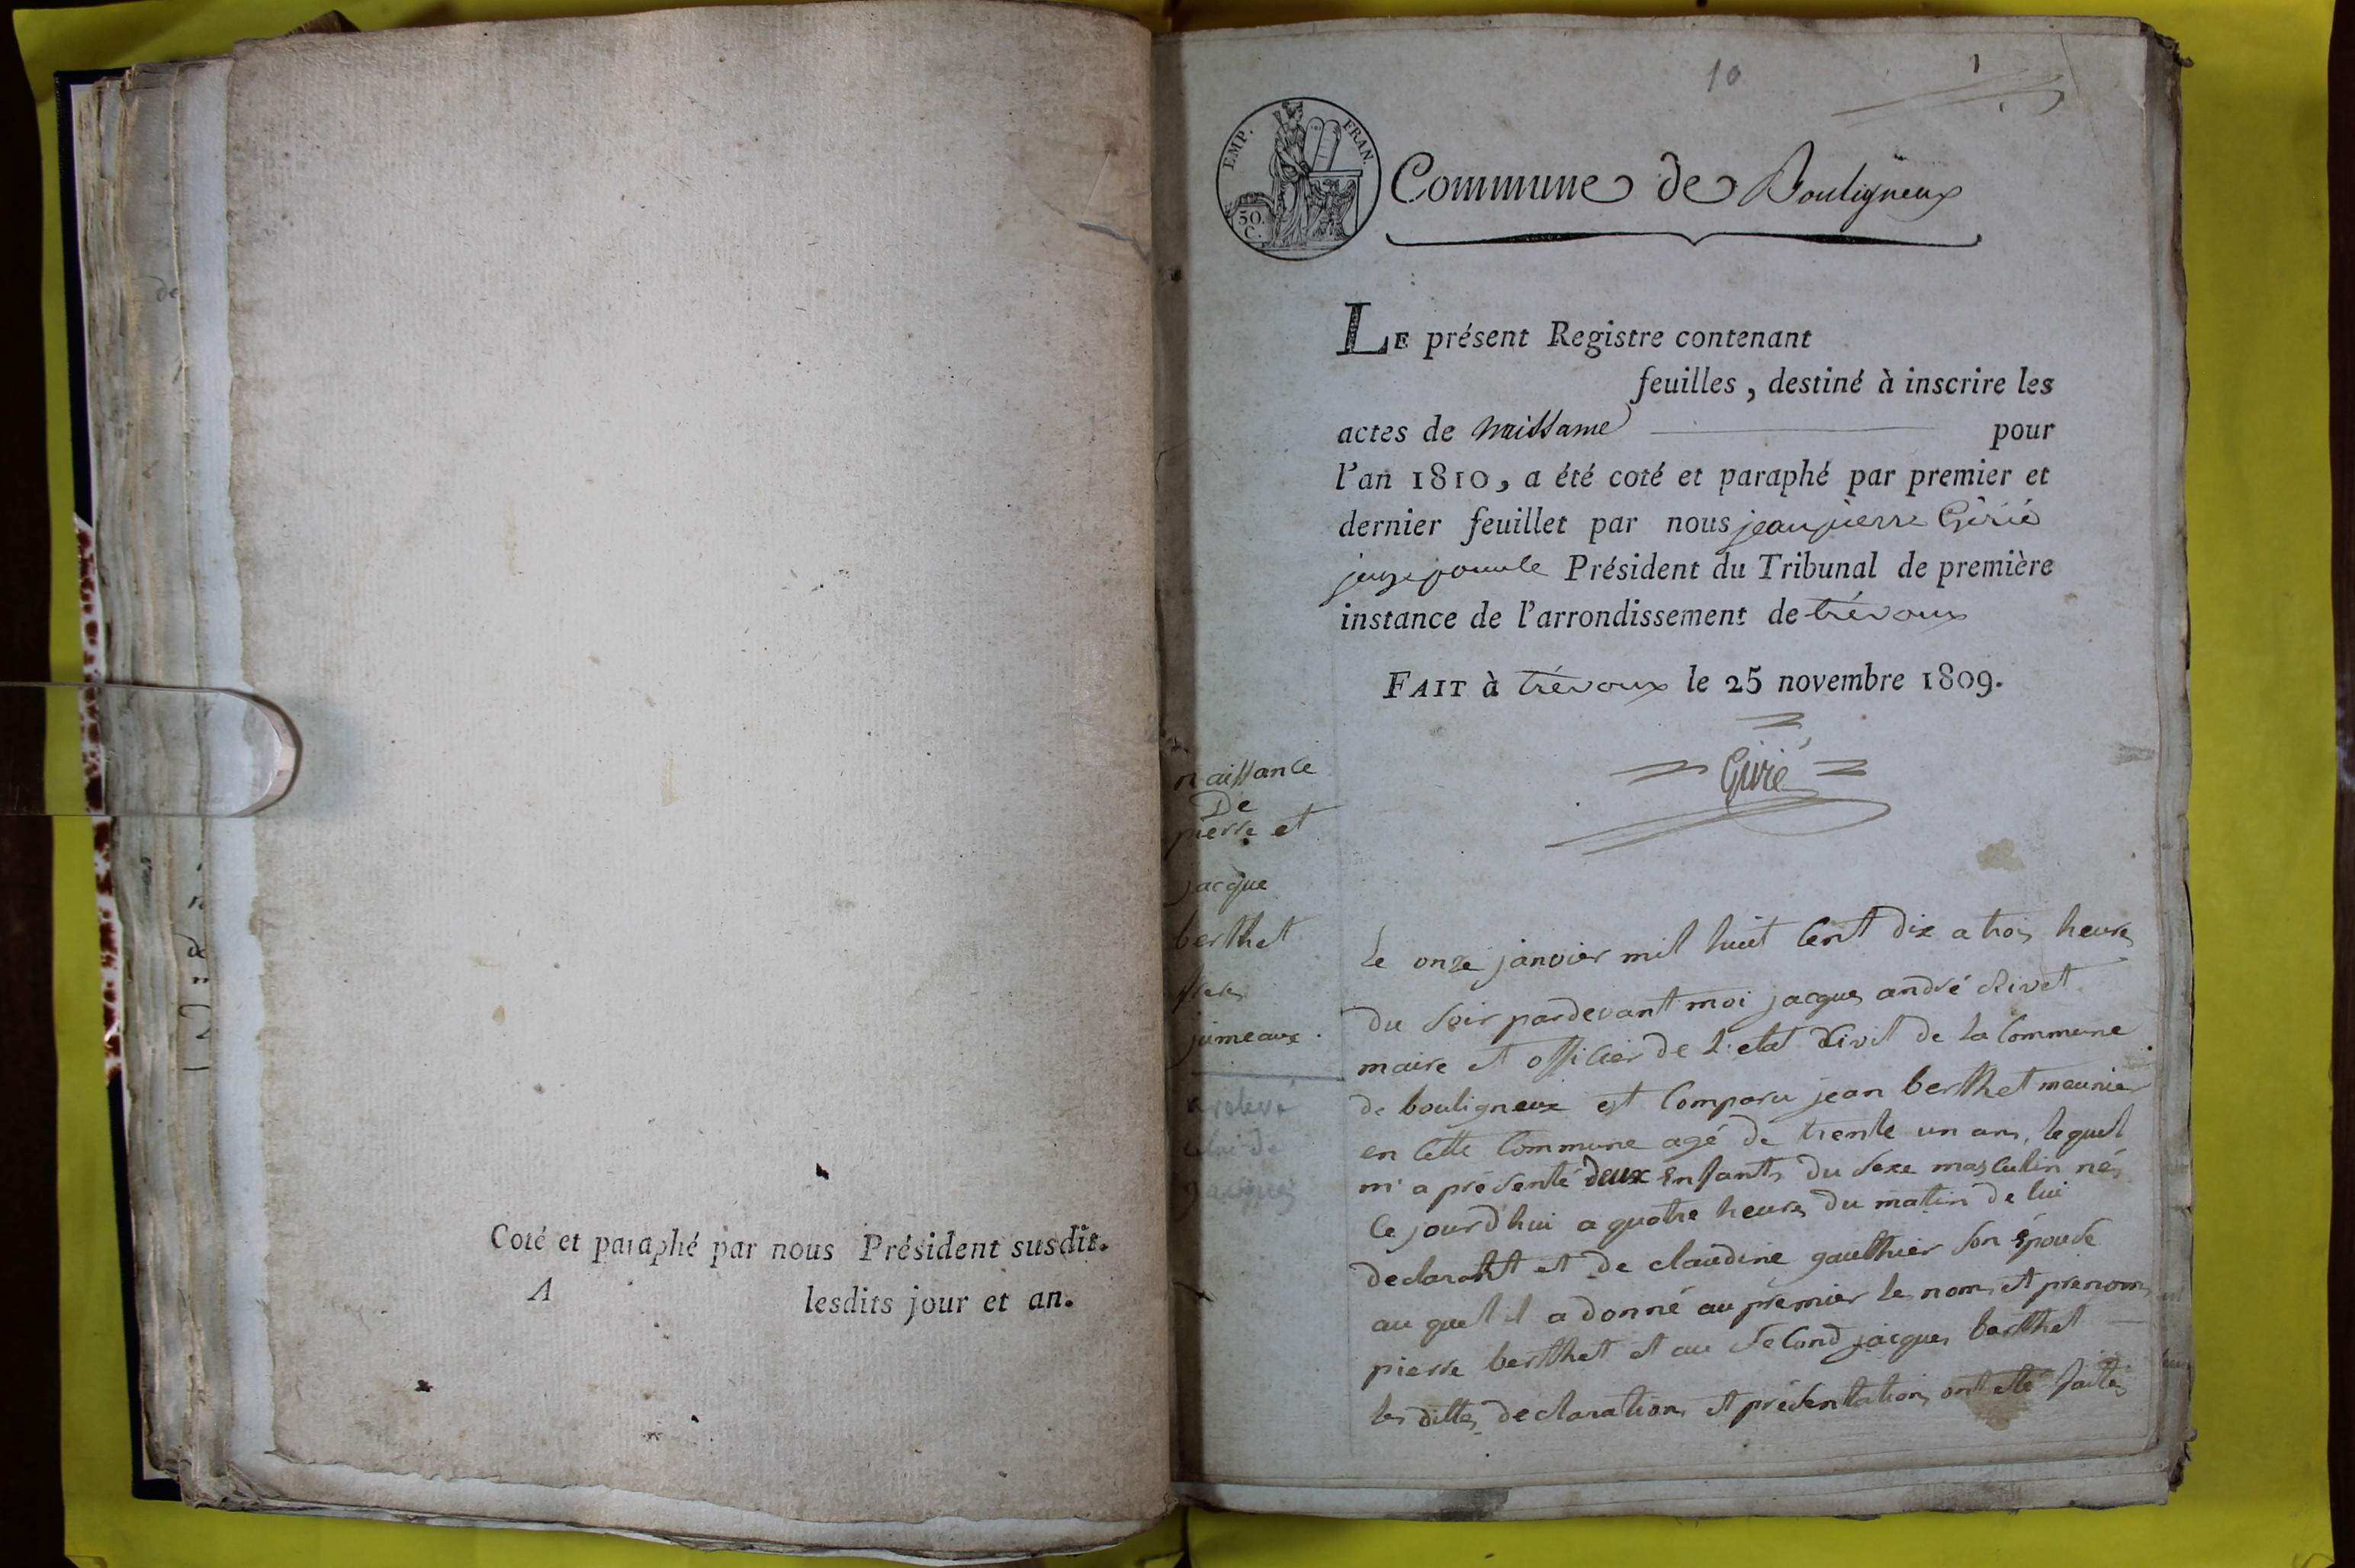 Coté et paraphé par nous Président susdit.
A lesdits jour et an.
10
1
EMP. FRAN.
50.
C.
Commune de Bouligneux
LE présent Registre contenant
feuilles, destiné à inscrire les
actes de naissance pour
l'an 1810, a été coté et paraphé par premier et
dernier feuillet par nous jean pierre Girié
juge Président du Tribunal de première
instance de l'arrondissement de trévoux
FAIT à trévoux le 25 novembre 1809.
Girié
naissance
De
pierre et
jacque
berthet
jumeaux.
Le onze janvier mil huit Cent dix a trois heures
du soir pardevant moi jacques andré Rivet
maire et officier de l'etat Civil de la Commune
de bouligneux est Comparu jean berthet meunier
en Cette Commune agé de trente un ans, lequel
m'a présenté deux Enfants du sexe masculin nés
Ce jourd'hui a quatre heures du matin de lui
declarant et de claudine gauthier son épouse
au quel il a donné au premier les noms et prenoms
pierre berthet et au second jacques berthet
les dittes declarations et présentations ont eté faites